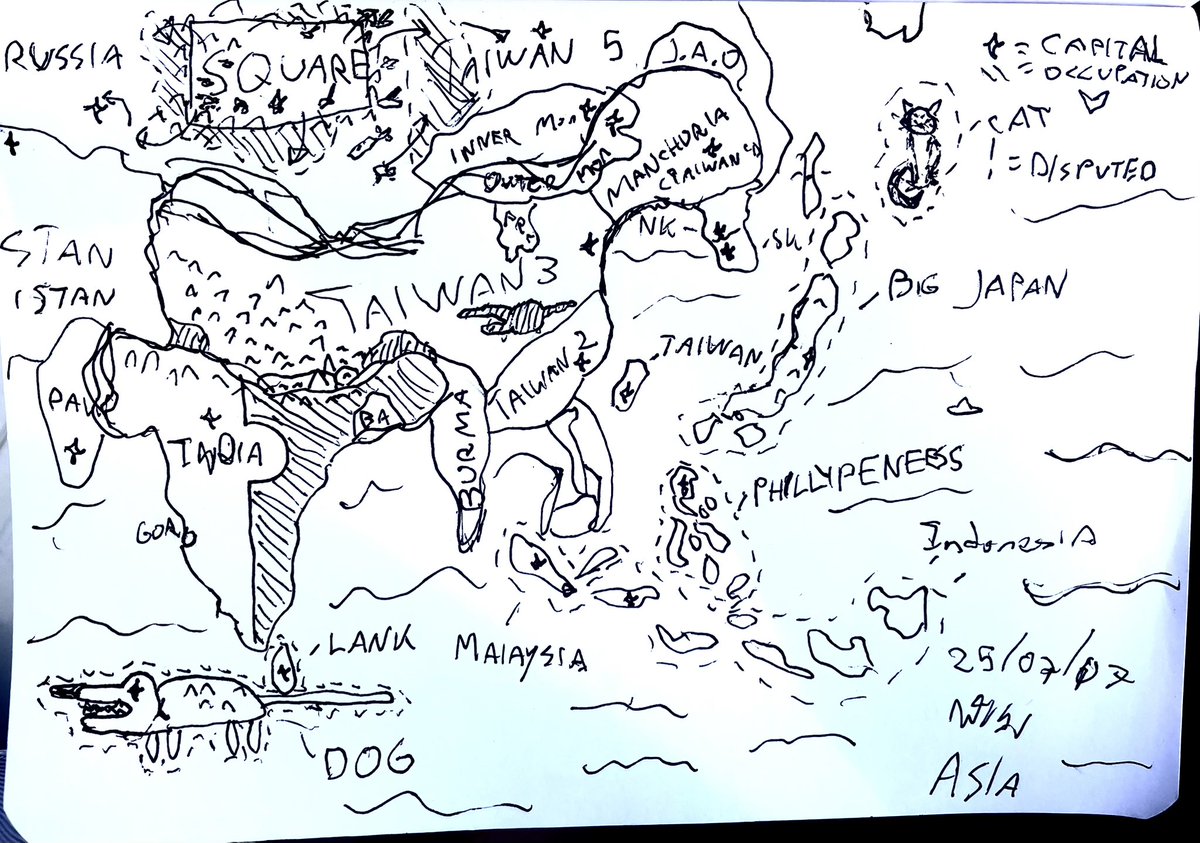 RUSSIA
SQUARE
TAIWAN 5
J.A.O
= CAPITAL
= OCCUPATION
CAT
= DISPUTED
INNER MON
OUTER MON
MANCHURIA
(TAIWAN 4)
PRC
NK
SK
STAN
ISTAN
TAIWAN 3
BIG JAPAN
TAIWAN
TAIWAN 2
PAK
INDIA
BA
BURMA
GOA
PHILLYPENEESS
Indonesia
LANK
MALAYSIA
DOG
25/07/07
ASIA